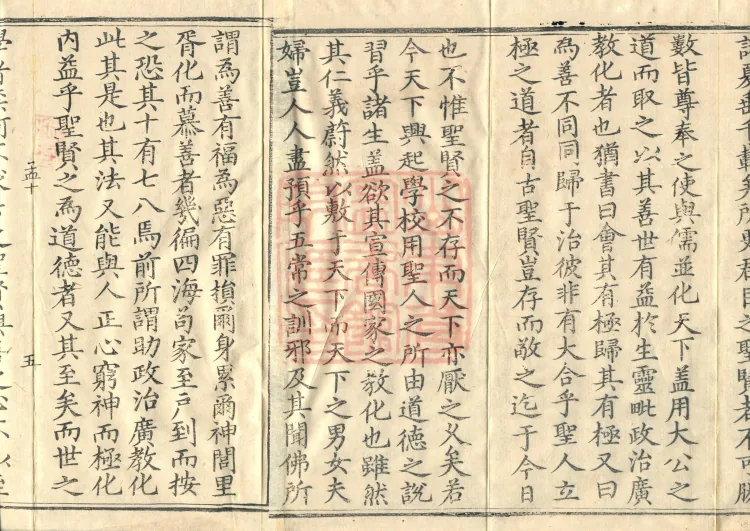 數皆尊奉之使與儒並化天下蓋用大公之
道而取之以其善世有益於生靈毗政治廣
教化者也猶書曰會其有極歸其有極又曰
為善不同同歸于治彼非有大合乎聖人立
極之道者自古聖賢豈存而敬之迄于今日
也不惟聖賢之不存而天下亦厭之久矣若
今天下興起學校用聖人之所由道德之說
習乎諸生蓋欲其宣傳國家之教化也雖然
其仁義蔚然以敷于天下而天下之男女夫
婦豈人人盡預乎五常之訓邪及其聞佛所
謂為善有福為惡有罪損爾身累爾神閭里
胥化而慕善者幾徧四海苟家至戶到而按
之恐其十有七八焉前所謂助政治廣教化
此其是也其法又能與人正心窮神而極化
內益乎聖賢之為道德者又其至矣而世之
孟十
五